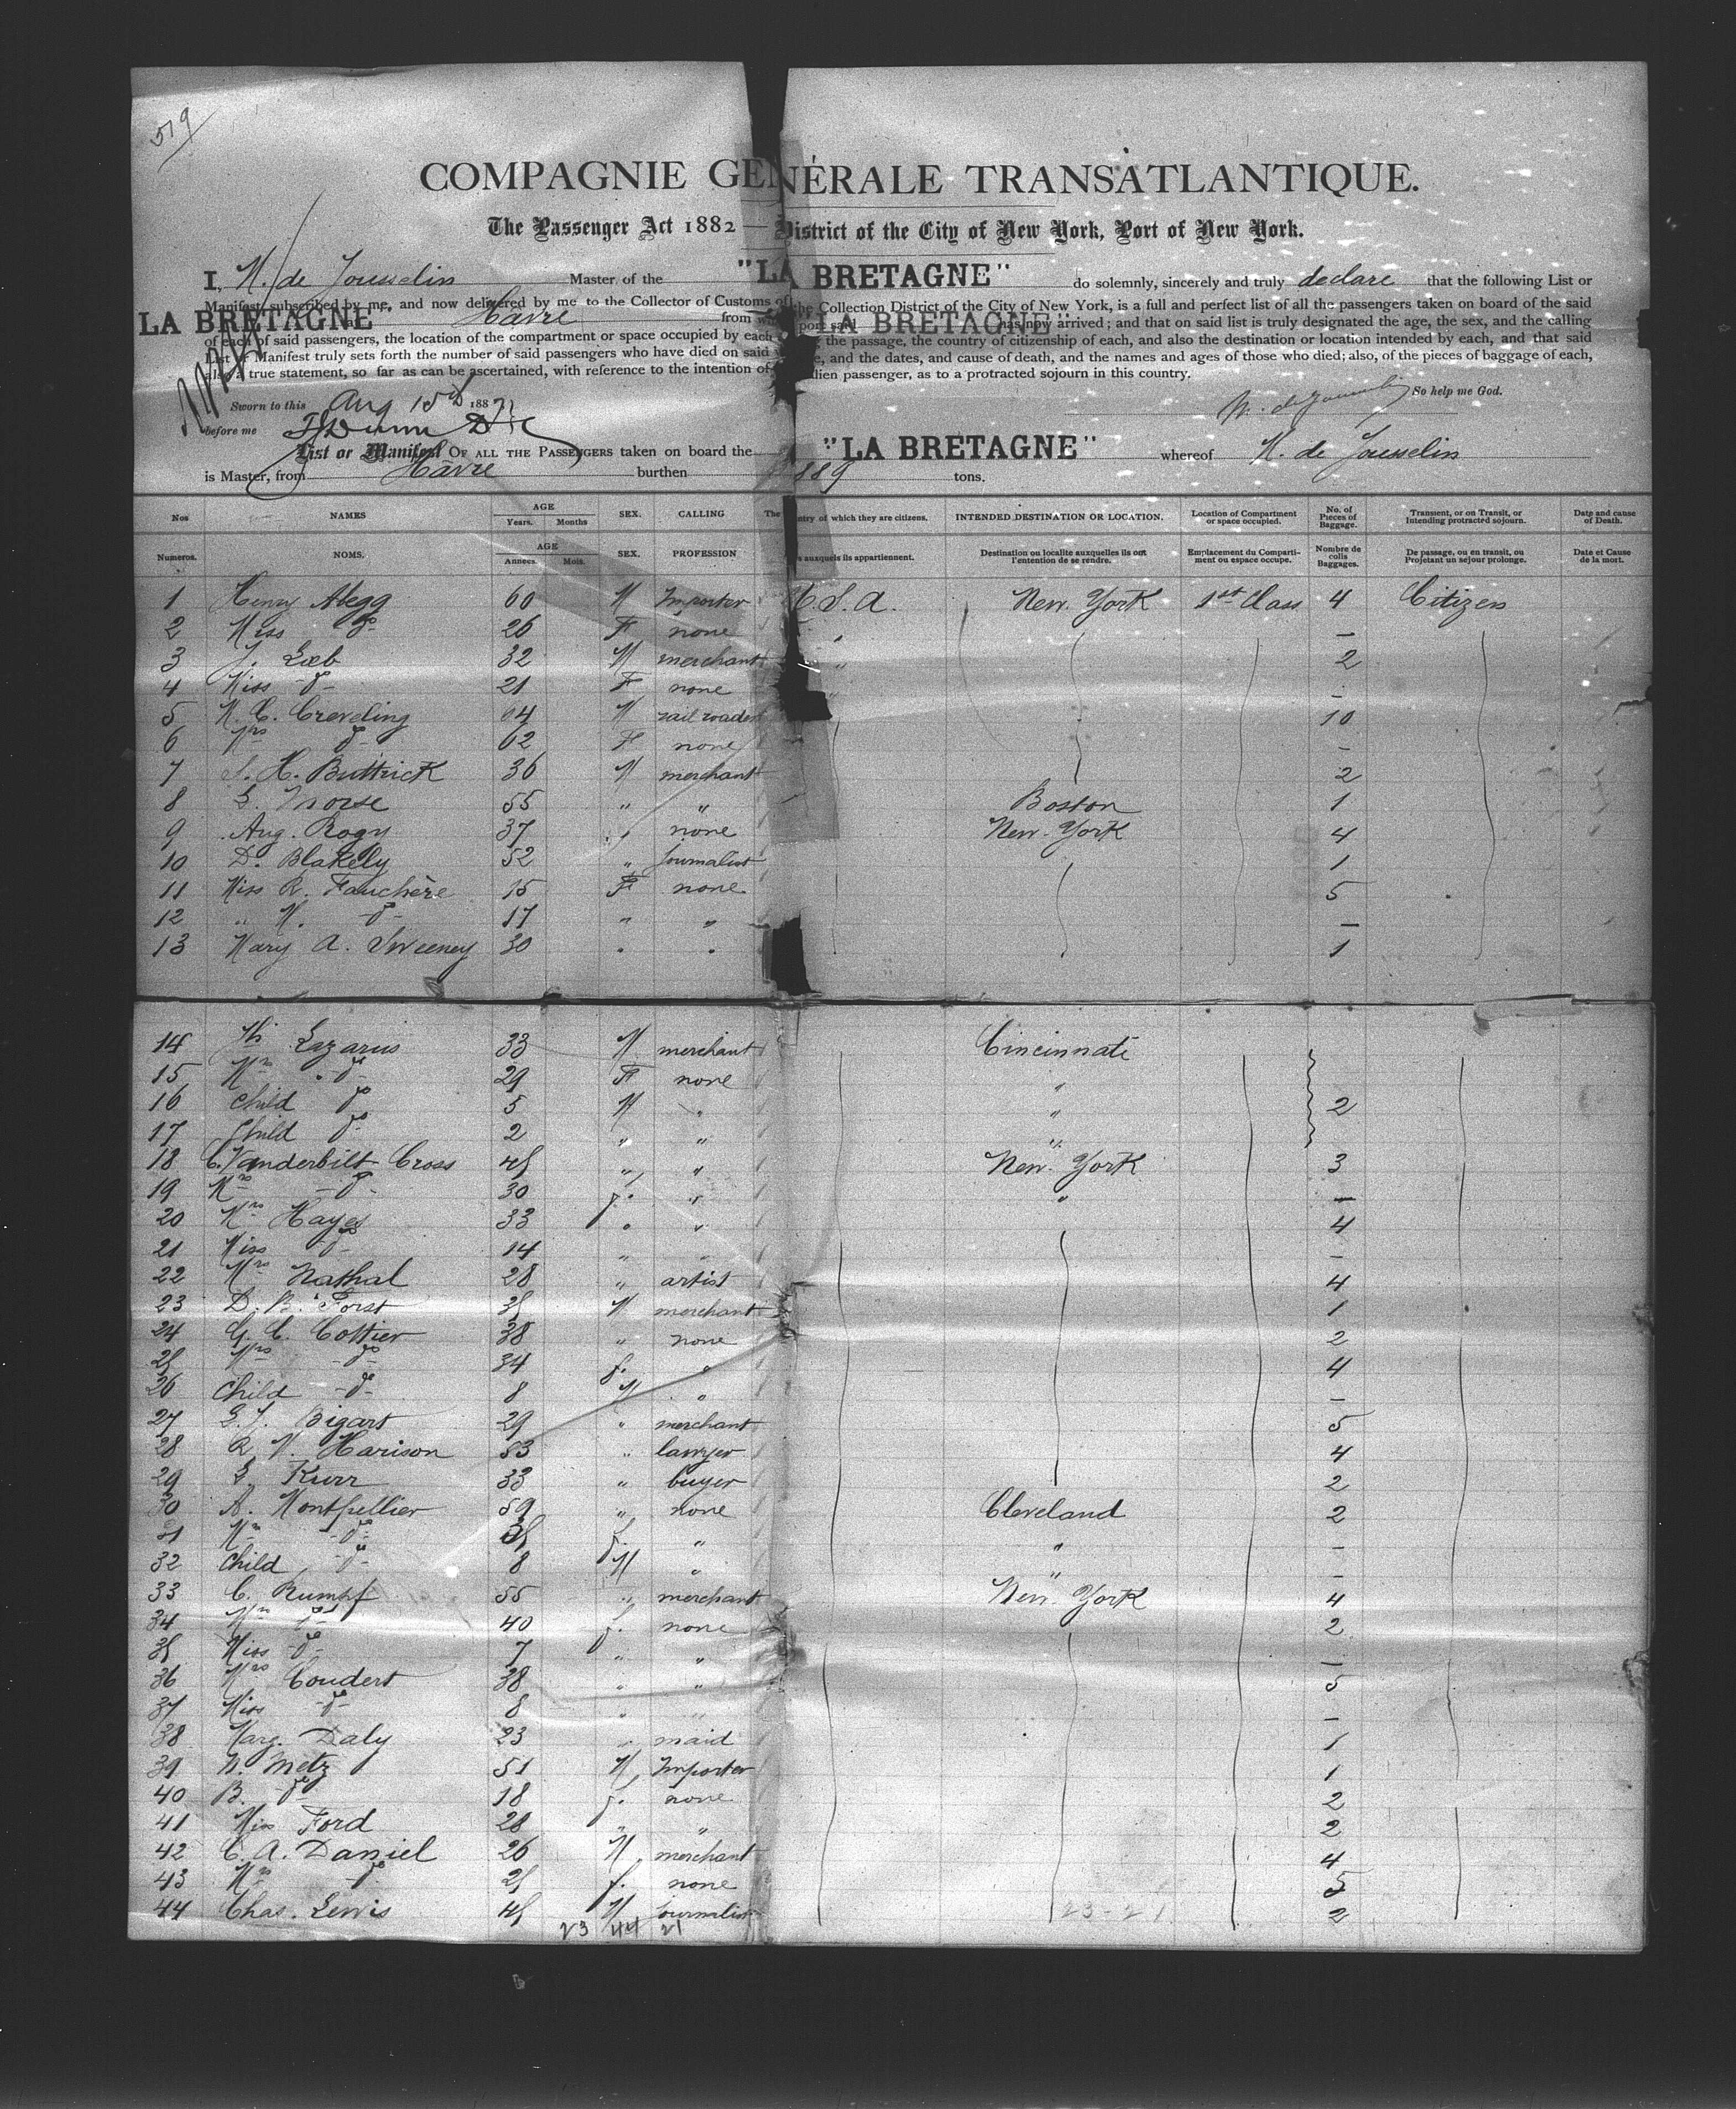 519
COMPAGNIE GENÉRALE TRANSATLANTIQUE.
The Passenger Act 1882 — District of the City of New York, Port of New York.
I, de Jousselin Master of the "LA BRETAGNE" do solemnly, sincerely and truly declare that the following List or
Manifest, subscribed by me, and now delivered by me to the Collector of Customs of the Collection District of the City of New York, is a full and perfect list of all the passengers taken on board of the said
LA BRETAGNE Havre from port said LA BRETAGNE has now arrived; and that on said list is truly designated the age, the sex, and the calling
of each of said passengers, the location of the compartment or space occupied by each the passage, the country of citizenship of each, and also the destination or location intended by each, and that said
List or Manifest truly sets forth the number of said passengers who have died on said and the dates, and cause of death, and the names and ages of those who died; also, of the pieces of baggage of each,
also a true statement, so far as can be ascertained, with reference to the intention of alien passenger, as to a protracted sojourn in this country.
So help me God.
Sworn to this Aug 15th 188
before me
List or Manifest OF ALL THE PASSENGERS taken on board the "LA BRETAGNE" whereof de Jousselin
is Master, from Havre burthen 889 tons.
Nos NAMES AGE Years. Months SEX. CALLING The country of which they are citizens. INTENDED DESTINATION OR LOCATION. Location of Compartment or space occupied. No. of Pieces of Baggage. Transient, or on Transit, or Intending protracted sojourn. Date and cause of Death.
Numeros. NOMS. AGE Annees. Mois. SEX. PROFESSION auxquels ils appartiennent. Destination ou localite auxquelles ils ont l'entention de se rendre. Emplacement du Comparti- ment ou espace occupe. Nombre de colis Baggages. De passage, ou en transit, ou Projetant un sejour prolonge. Date et Cause de la mort.
1 Henry Alegg 60 M Importer U.S.A. New York 1st Class 4 Citizen
2 Miss do 26 F none " —
3 J. Loeb 32 M merchant " 2
4 Miss do 21 F none —
5 Creveling 64 M rail roader 10
6 Mrs do 62 F none —
7 S. H. Buttrick 36 M merchant 2
8 Morse 55 " " Boston 1
9 Aug. Rogy 37 " none New York 4
10 D. Blakely 52 " Journalist 1
11 Miss R. Fauchère 15 F none 5
12 " M. do 17 " " —
13 Mary A. Sweeney 30 " " 1
14 Lazarus 33 M merchant Cincinnati
15 Mrs do 29 F none "
16 Child do 5 M " " 2
17 Child do 2 " " "
18 C. Vanderbilt Cross 45 " " New York 3
19 Mrs do 30 f. " " —
20 Mrs Hayes 33 " " 4
21 Miss do 14 " " —
22 Mrs Nathal 28 " artist 4
23 D. B. Forst 35 M merchant 1
24 G. C. Cottier 38 " none 2
25 Mrs do 34 f. " 4
26 Child do 8 M " —
27 Bigart 29 " merchant 5
28 Harison 53 " lawyer 4
29 Kurr 33 " buyer 2
30 A. Montpellier 59 " none Cleveland 2
31 Mrs do f. " " —
32 Child do 8 M " " —
33 C. Rumpf 55 " merchant New York 4
34 Mrs do 40 f. none 2
35 Miss do 7 " " —
36 Mrs Coudert 38 " " 5
37 Miss do 8 " " —
38 Marg. Daly 23 " maid 1
39 Metz 51 M Importer 1
40 B. do 18 f. none 2
41 Miss Ford 28 " " 2
42 C. A. Daniel 26 M merchant 4
43 Mrs do 25 f. none 5
44 Chas. Lewis 45 M Journalist 2
23 44 21 23-21